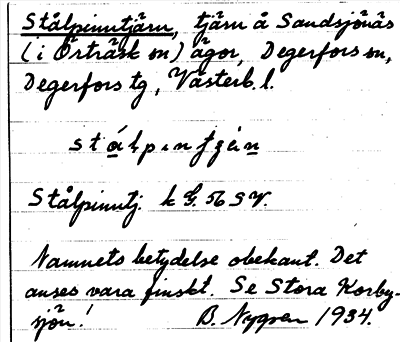 Stålpinntjärn, tjärn å Sandsjönäs
(i Örträsk sn) ägor, Degerfors sn,
Degerfors tg, Västerb. l.
Stålpinntj. k G. 56 SV.
Namnets betydelse obekant. Det
anses vara finskt. Se Stora Korby-
sjön!
B. Nygren 1934.